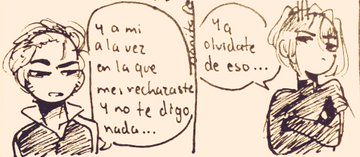 Y a mi
a la vez
en la que
me rechazaste
Y no te digo
nada...
Ya
olvidate
de eso...